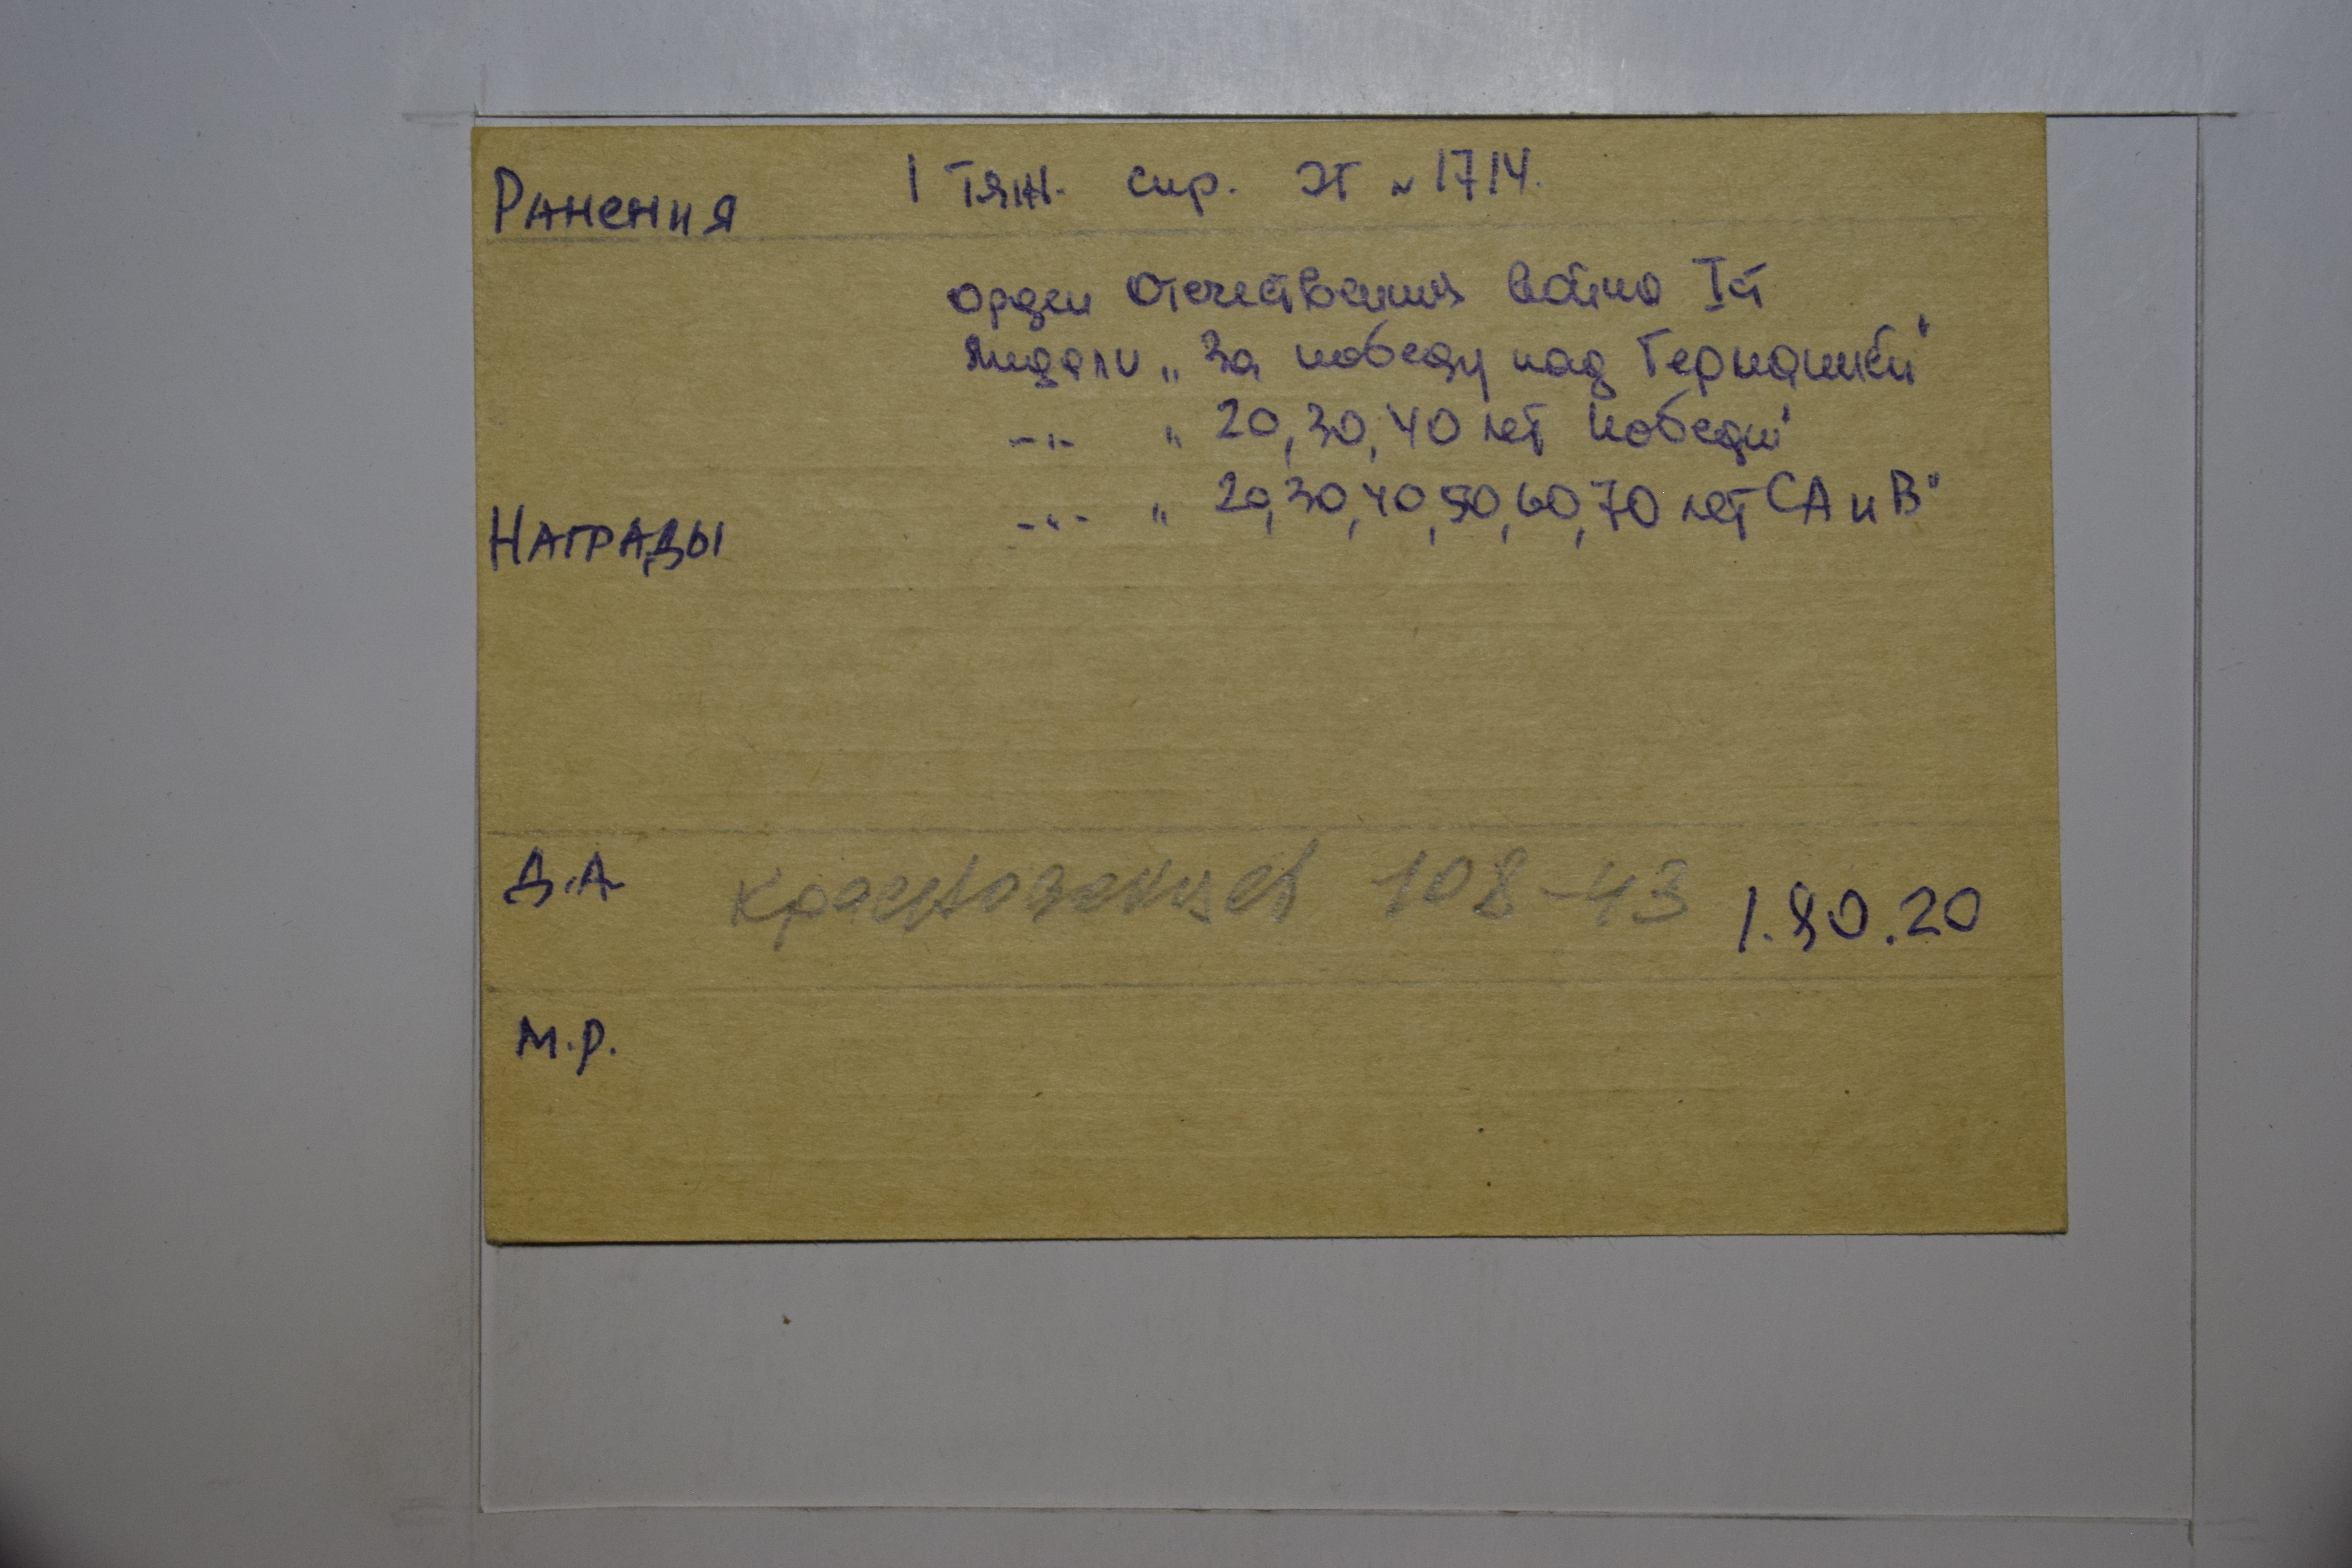 Ранения 1 тяж. спр. ЭГ № 1714.
орден Отечествення Война I ст
Медали „За победу над Германией"
-"- „20, 30, 40 лет Победы"
Награды -"- „20, 30, 40, 50, 60, 70 лет СА и В"
Д.А 108-43 1.80.20
М.Р.